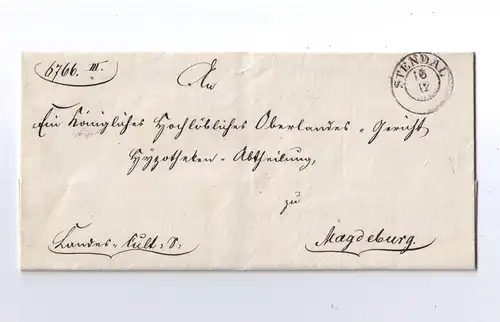 6766. III.
STENDAL
16
12
An
Ein Königliches Hochlöbliches Oberlandes-Gericht
Hypotheken-Abtheilung,
zu
Landes-Cult: S:
Magdeburg.